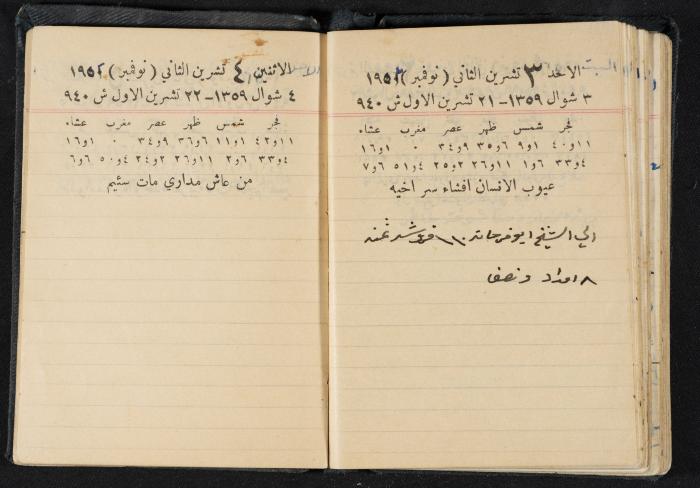 الاحد ٣ تشرين الثاني (نوفمبر) ١٩٥٢
٣ شوال ١٣٥٩ – ٢١ تشرين الاول ش ٩٤٠
فجر شمس ظهر عصر مغرب عشاء
١١و٤٠ ١و٩ ٦و٣٥ ٩و٣٤ ٠ ١و١٦
٤و٣٣ ٦و١ ١١و٢٦ ٢و٢٥ ٤و٥١ ٦و٧
عيوب الانسان افشاء سر اخيه
الى الشيخ قرش ثمنه
٨ امداد ونصف
الاثنين ٤ تشرين الثاني (نوفمبر) ١٩٥٢
٤ شوال ١٣٥٩ – ٢٢ تشرين الاول ش ٩٤٠
فجر شمس ظهر عصر مغرب عشاء
١١و٤٢ ١و١١ ٦و٣٦ ٩و٣٤ ٠ ١و١٦
٤و٣٣ ٦و٢ ١١و٢٦ ٢و٢٤ ٤و٥٠ ٦و٦
من عاش مداري مات سئيم